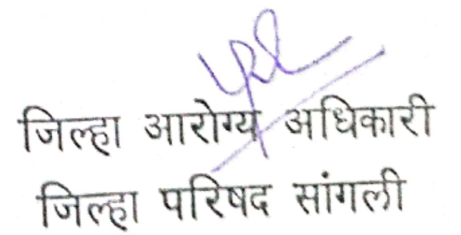 जिल्हा आरोग्य अधिकारी
जिल्हा परिषद सांगली